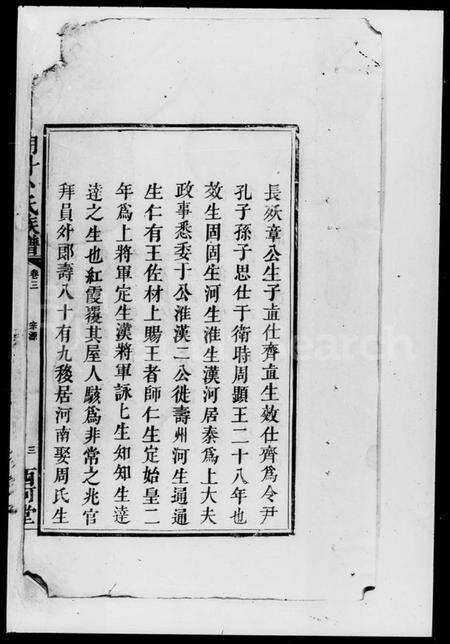 長妖章公生子直仕齊直生效仕齊爲令尹
孔子孫子思仕于衛時周顯王二十八年也
效生固固生河生淮生漢河居秦爲上大夫
政事悉委于公淮漢二公徙壽州河生通通
生仁有王佐材上賜王者師仁生定始皇二
年爲上將軍定生漢將軍詠詠生知知生逵
逵之生也紅霞覆其屋人駭爲非常之兆官
拜員外郎壽八十有九後居河南娶周氏生
氏族譜
卷三
宗源
三
西河堂